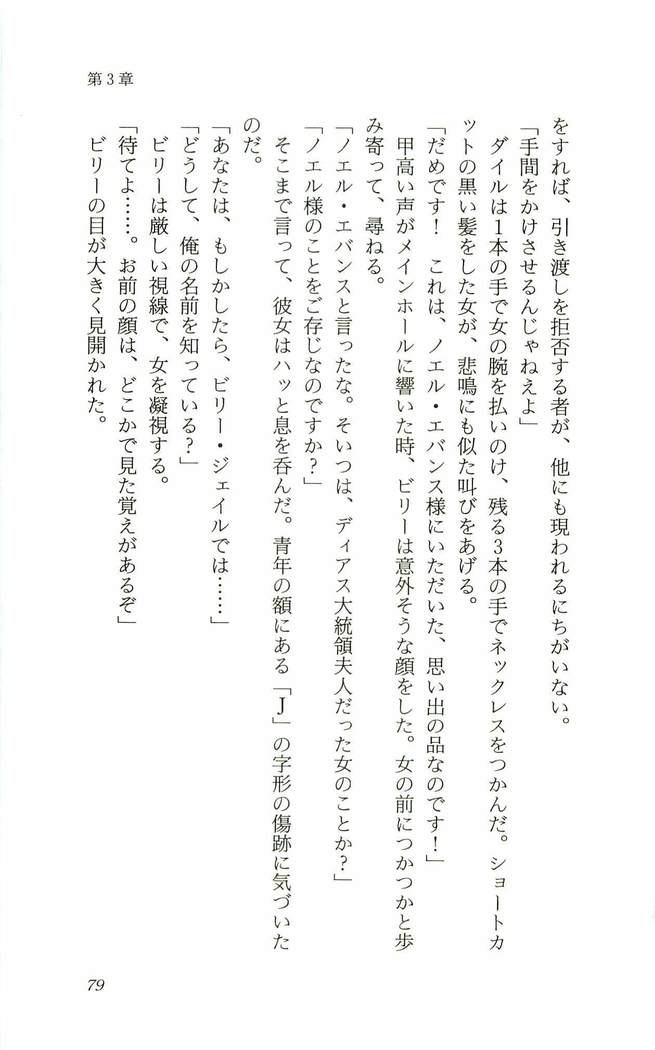 第3章
をすれば、引き渡しを拒否する者が、他にも現われるにちがいない。
「手間をかけさせるんじゃねえよ」
ダイルは1本の手で女の腕を払いのけ、残る3本の手でネックレスをつかんだ。ショートカ
ットの黒い髪をした女が、悲鳴にも似た叫びをあげる。
「だめです！　これは、ノエル・エバンス様にいただいた、思い出の品なのです！」
甲高い声がメインホールに響いた時、ビリーは意外そうな顔をした。女の前につかつかと歩
み寄って、尋ねる。
「ノエル・エバンスと言ったな。そいつは、ディアス大統領夫人だった女のことか？」
「ノエル様のことをご存じなのですか？」
そこまで言って、彼女はハッと息を呑んだ。青年の額にある「J」の字形の傷跡に気づいた
のだ。
「あなたは、もしかしたら、ビリー・ジェイルでは……」
「どうして、俺の名前を知っている？」
ビリーは厳しい視線で、女を凝視する。
「待てよ……。お前の顔は、どこかで見た覚えがあるぞ」
ビリーの目が大きく見開かれた。
79